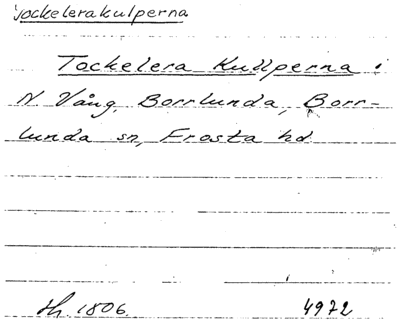 Tockelerakulperna
Tockelera Kullperna i
N. Vång, Borrlunda, Borr-
lunda sn, Frosta hd
Sk. 1806. 4972